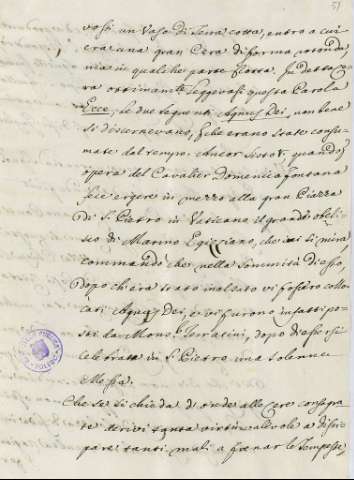 51
vasi un Vaso di Terra cotta, entro a cui
era una gran Cera di forma rotonda
ma in qualche parte Rotta. In detta Ce
ra ottimamte leggevasi questa Parola
Ecce, le due seguenti Agnus Dei, non bene
si discernevano, perchè erano state consu
mate dal tempo. Ancor Sisto V. quando
opera del Cavalier Domenico Fontana
fece ergere in mezzo alla gran Piazza
di S. Pietro in Vaticano il grande obeli
sco di Marmo Egizziano, che ivi si mira
commandò che nella sommità di esso,
dopo ch'era stato inalzato vi fossero collo
cati Agnus Dei, e vi furono infatti po
sti da Monsr. Ferratini, dopo di essersi
celebrata in S. Pietro una solenne
Messa.
Che se si chieda di onde alle Cere consegra
te derivi tanta virtù valevole a dissi
pare i tanti mali a frenar le Tempeste,